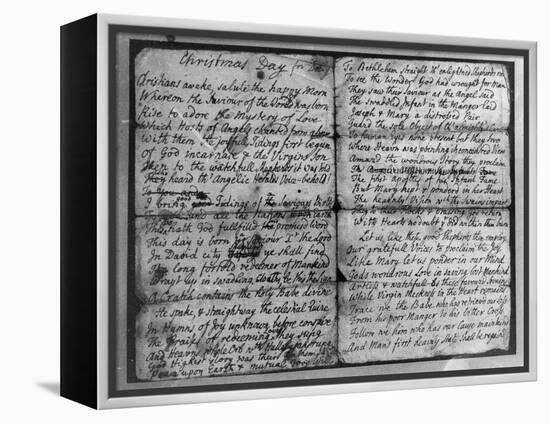 Christmas Day for
Christians awake, salute the happy Morn
Whereon the Saviour of the World was born
Rise to adore the Mystery of Love
Which Hosts of Angels chanted from above
With them the joyfull Tidings first begun
of God incarnate & the Virgins Son
to the watchfull Shepherds it was told
They heard th' Angelic Heralds Voice behold
I bring good Tidings of the Saviours Birth
To and all the Nations upon Earth
This day hath God fulfilled the promised Word
This day is born a Saviour the Lord
In David city ye shall find
The long foretold redeemer of Mankind
Wrapt up in swadling Cloaths, be this the Sign
A Cratch contains the Holy babe divine
He spake, & straightway the celestial Quire
In Hymns of Joy unknown before conspire
The Praises of redeeming they sung
And Heavns whole Orb wth Hallelujahs rung
God Highest Glory was their
Peace upon Earth & mutual
To Bethlehem straight th' enlightned Shepherds ran
To see the Wonder God had wrought for Man
They saw their Saviour as the Angel said
The swaddled Infant in the Manger laid
Joseph & Mary a distressed Pair
Guard the sole Object of th' almighty's Care
To human eyes none present but they two
Where Heavn was
Amaz'd the wondrous Story they proclaim
The first Apostles of his Infant Fame
But Mary kept & ponder'd in her Heart
The heavnly Vision wch the Swains impart
They to their Flocks & praising God return
With Hearts no doubt yt did within them burn
Let us like these good Shepherds then employ
Our gratefull Voices to proclaim the Joy
Like Mary let us ponder in our Mind
Gods wondrous Love in saving lost Mankind
Artless & watchfull as these
While Virgin Meekness in the Heart remains
Trace we the Babe who has retriev'd our Loss
From his poor Manger to his bitter Cross
Follow we him who has our Cause maintain'd
And Mans first heavnly State shall be regain'd